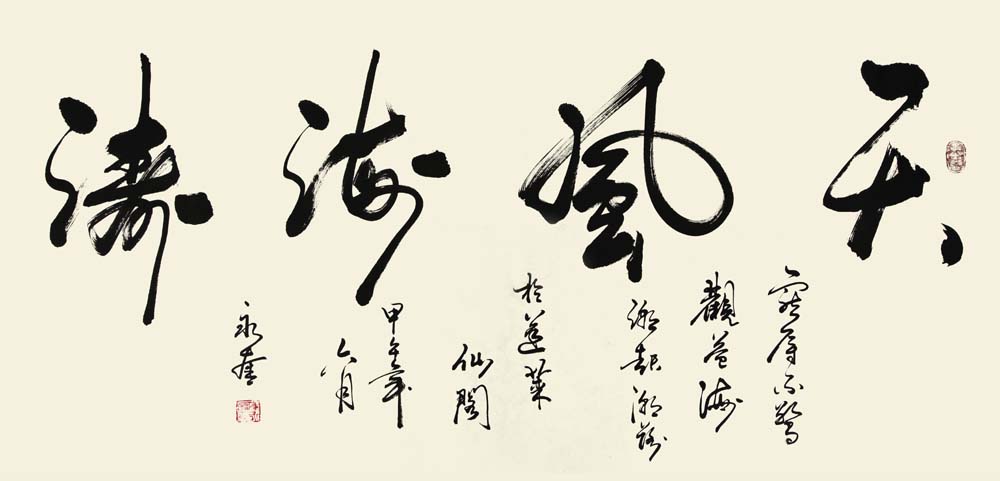 天風海濤
寵辱不驚
觀蒼海
潮起潮落
於蓬萊
仙閣
甲午年
六月
永